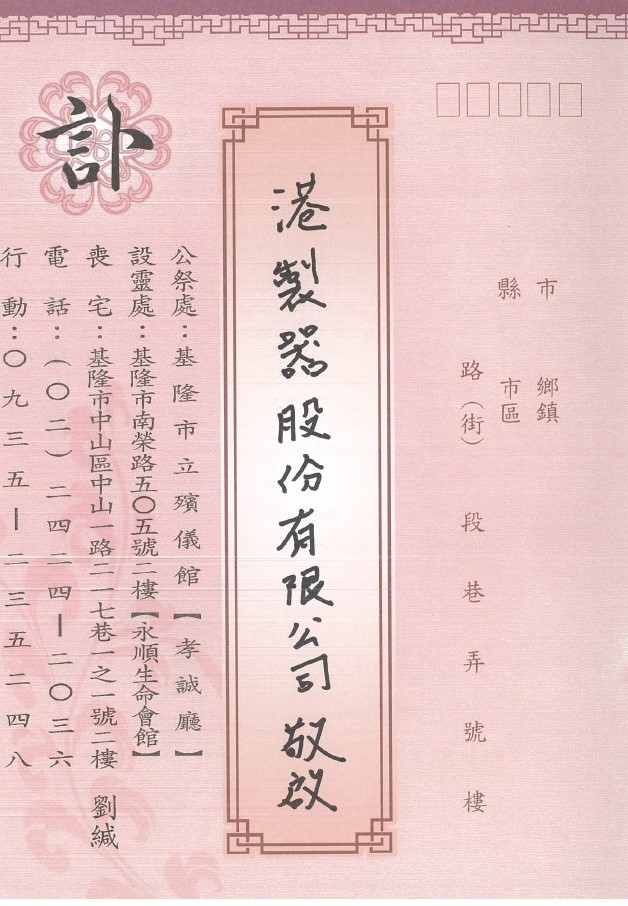 市 鄉鎮
縣 市區
路(街) 段 巷 弄 號 樓
港製器股份有限公司 敬啟
訃
公祭處：基隆市立殯儀館【孝誠廳】
設靈處：基隆市南榮路五〇五號二樓【永順生命會館】
喪宅：基隆市中山區中山一路二一七巷一之一號二樓 劉緘
電話：(〇二)二四二四－二〇三六
行動：〇九三五－二三五二四八